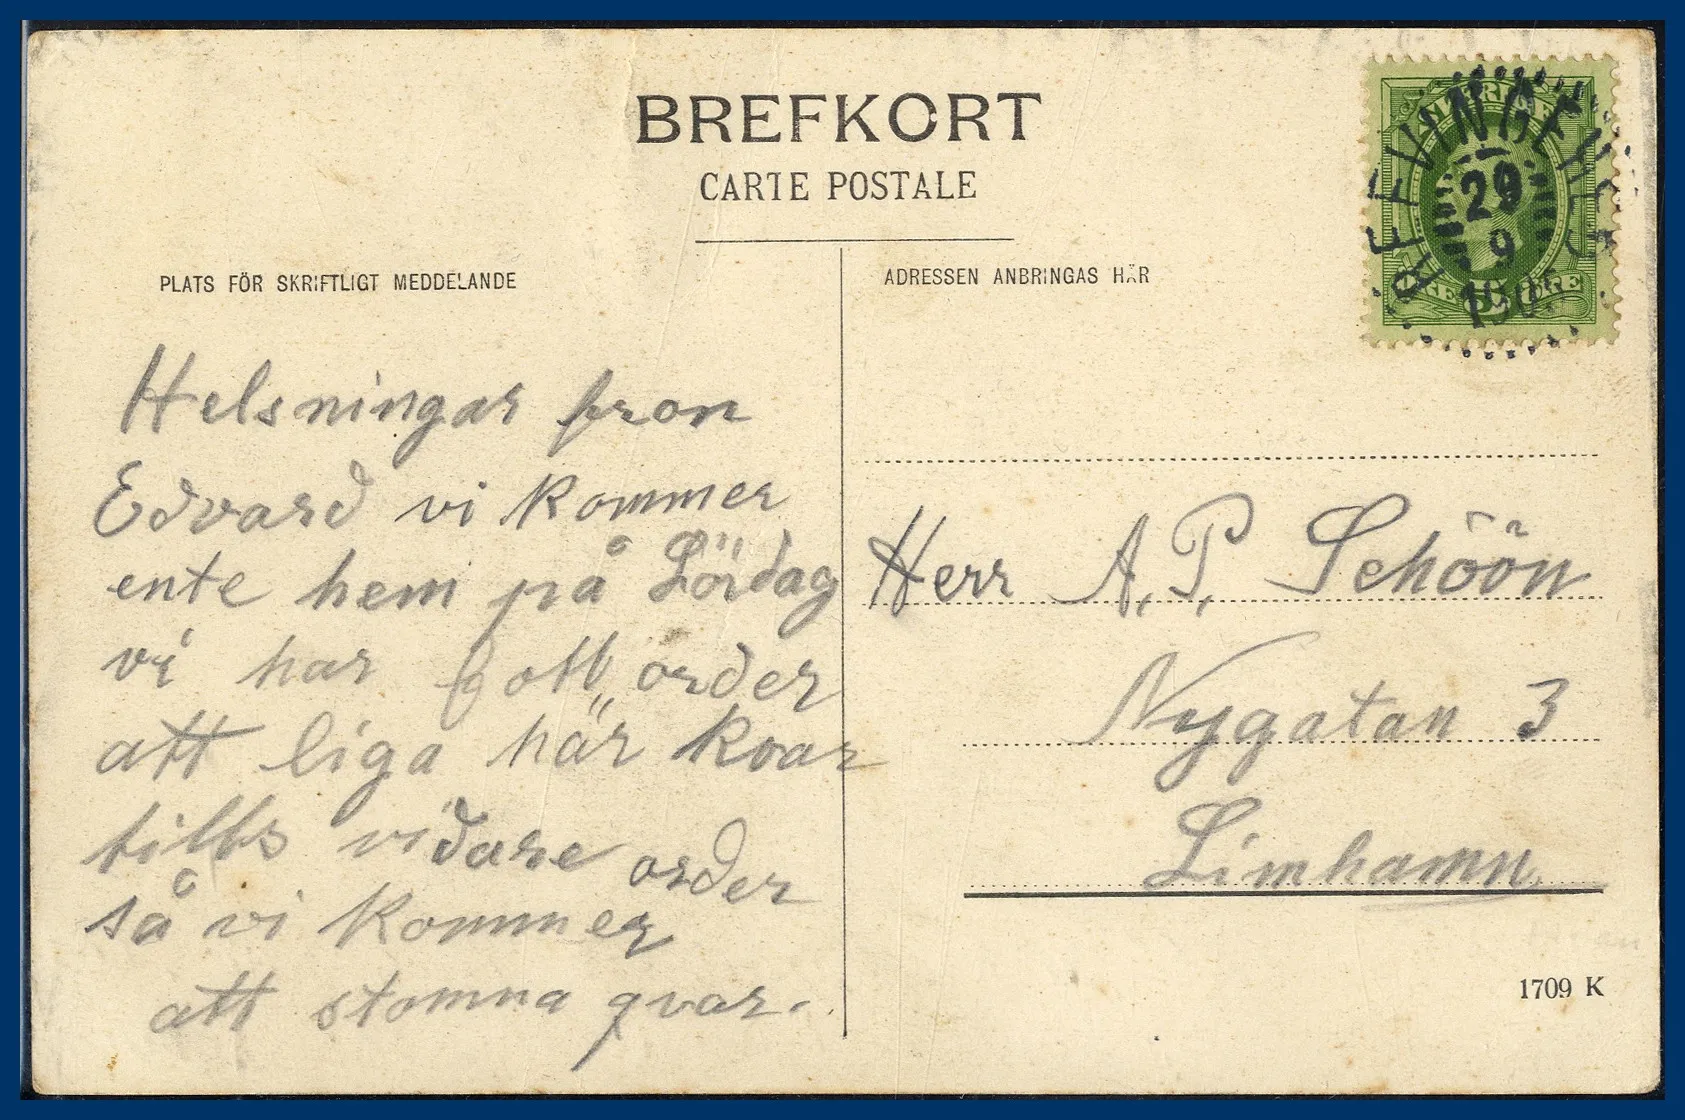 BREFKORT
CARTE POSTALE
PLATS FÖR SKRIFTLIGT MEDDELANDE
ADRESSEN ANBRINGAS HÄR
29
9
Helsningar fron
Edvard vi kommer
ente hem på Lördag
vi har fott order
att liga här kvar
tills vidare order
så vi kommer
att stomna qvar.
Herr A. P. Schöön
Nygatan 3
Limhamn
1709 K